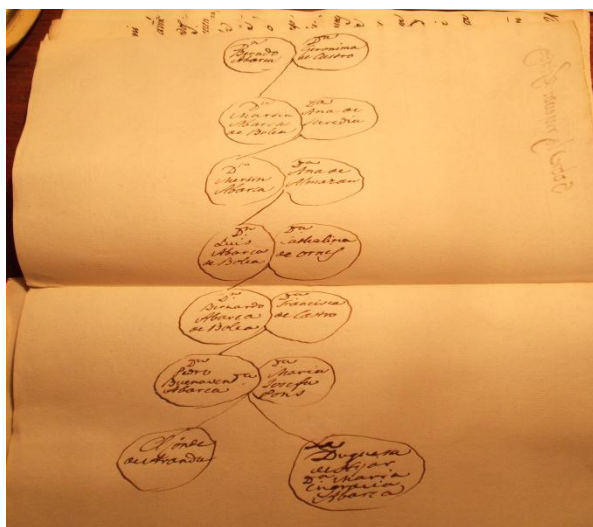 Dn
Bernardo
Abarca
Da
Geronima
de Castro
Dn
Martin
Abarca
de Bolea
Da
Ana de
Heredia
Dn
Martin
Abarca
Da
Ana de
Almazan
Dn
Luis
Abarca
de Bolea
Da
Cathalina
de Ornes
Dn
Bernardo
Abarca
de Bolea
Da
Francisca
de Castro
Dn
Pedro
Buenaven.ra
Abarca
Da
Maria
Josefa
Pons
El Conde
de Aranda
La
Duquesa
de Hijar
Da Maria
Engracia
Abarca